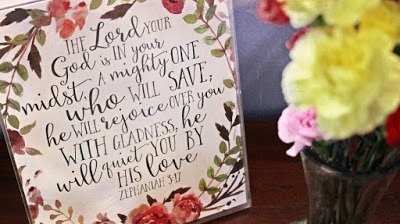 THE LORD YOUR
God IS IN YOUR
midst, A MIGHTY ONE
WHO WILL SAVE;
he WILL REJOICE OVER YOU
WITH GLADNESS; he
will QUIET YOU BY
HIS LOVE
ZEPHANIAH 3:17